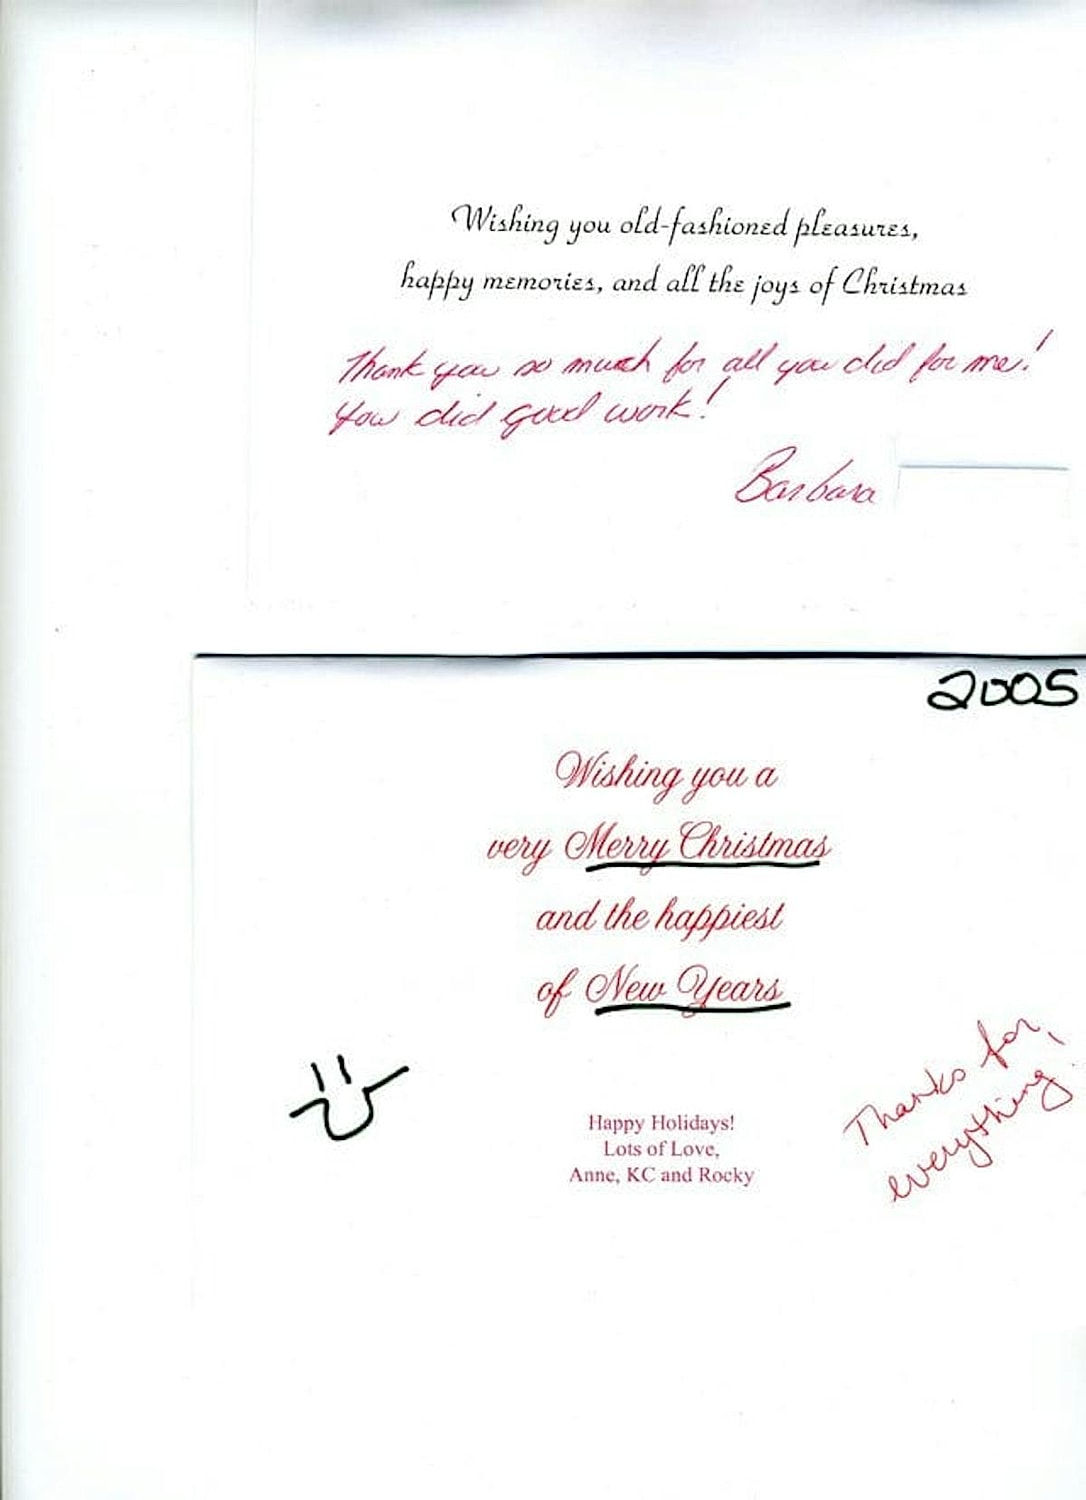 Wishing you old-fashioned pleasures,
happy memories, and all the joys of Christmas
Thank you so much for all you did for me!
You did good work!
Barbara
2005
Wishing you a
very Merry Christmas
and the happiest
of New Years
Happy Holidays!
Lots of Love,
Anne, KC and Rocky
Thanks for
everything.